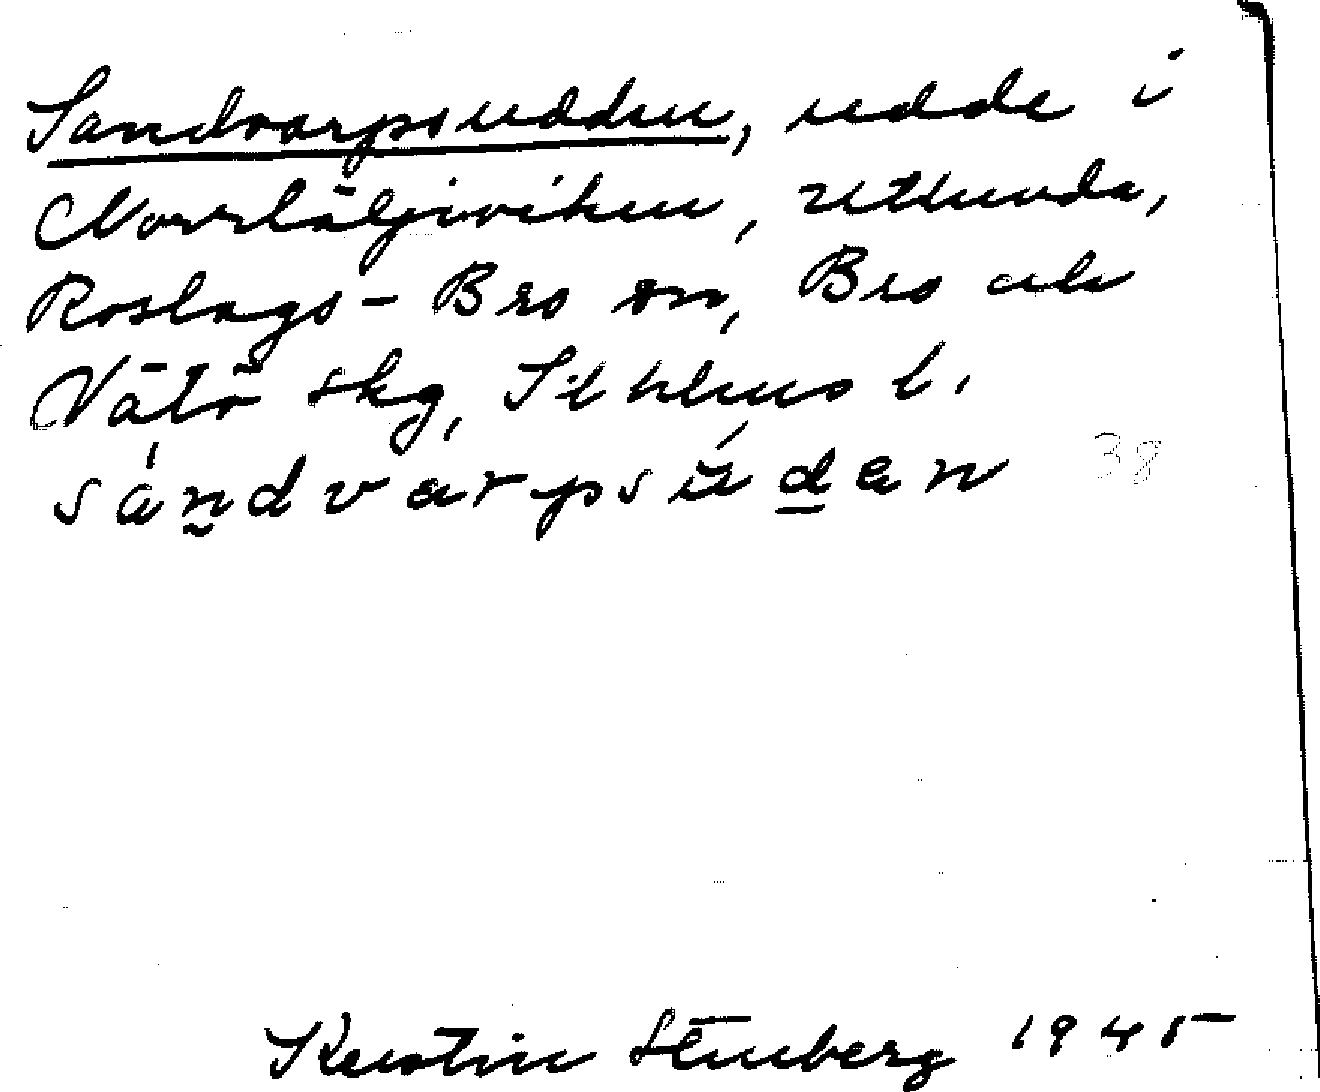 Sandvarpsudden, udde i
Norrtäljeviken, Utlunda,
Roslags-Bro sn, Bro och
Vätö skg, Sthlms l.
sándvarpsùden 38
Kerstin Stenberg 1945